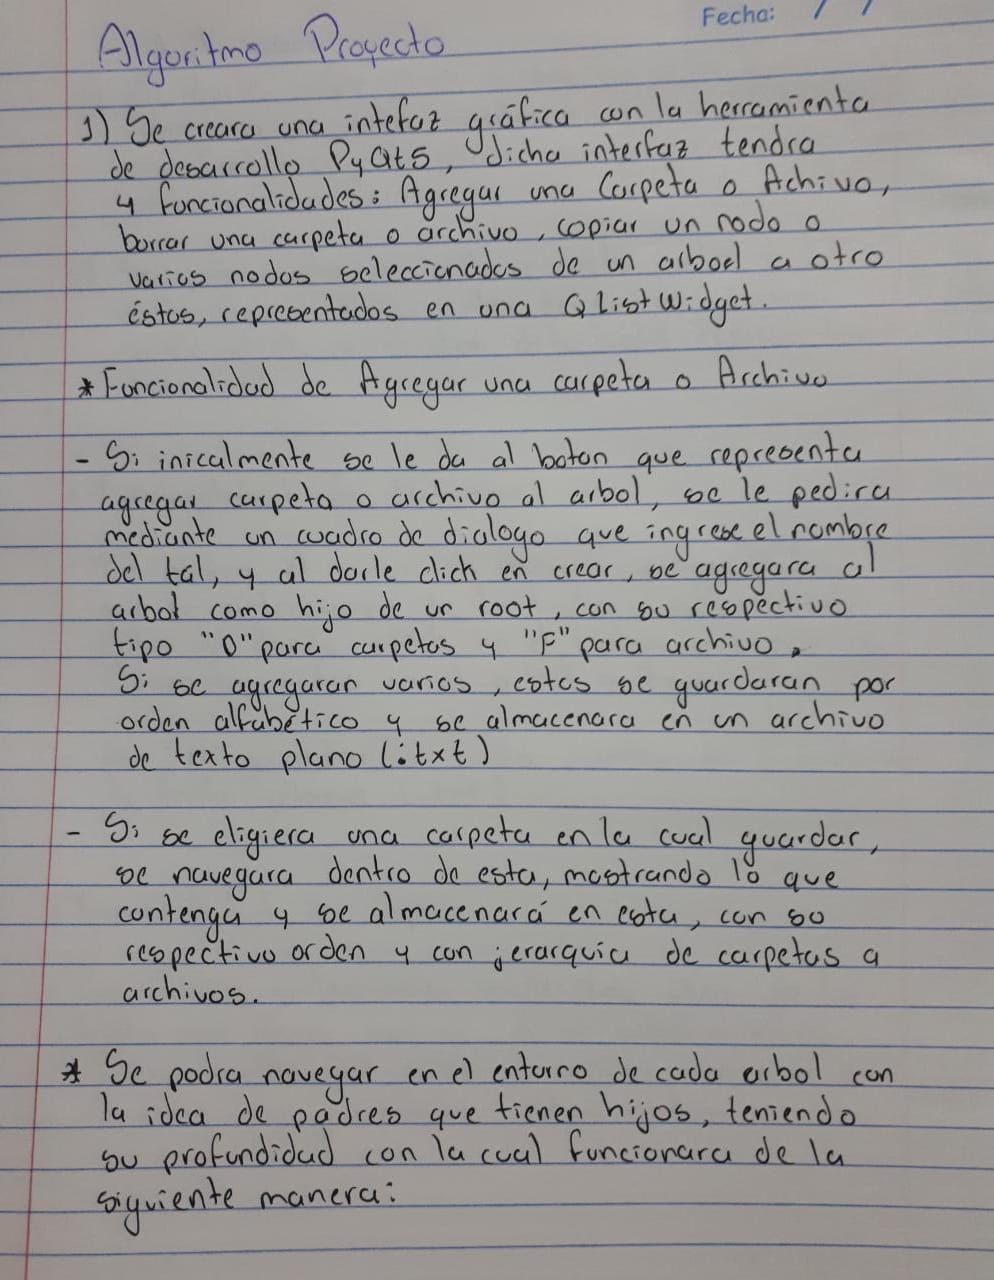 Fecha: / /
Algoritmo Proyecto
1) Se creara una intefaz gráfica con la herramienta
de desarrollo PyQt5, dicha interfaz tendra
4 funcionalidades: Agregar una Carpeta o Achivo,
borrar una carpeta o archivo, copiar un nodo o
varios nodos seleccionados de un arbol a otro
éstos, representados en una QListWidget.
* Funcionalidad de Agregar una carpeta o Archivo
- Si inicalmente se le da al boton que representa
agregar carpeta o archivo al arbol, se le pedira
mediante un cuadro de dialogo que ingrese el nombre
del tal, y al darle click en crear, se agregara al
arbol como hijo de un root, con su respectivo
tipo "D" para carpetas y "F" para archivo.
Si se agregaran varios, estos se guardaran por
orden alfabético y se almacenara en un archivo
de texto plano (.txt)
- Si se eligiera una carpeta en la cual guardar,
se navegara dentro de esta, mostrando lo que
contenga y se almacenará en esta, con su
respectivo orden y con jerarquia de carpetas a
archivos.
* Se podra navegar en el entorno de cada arbol con
la idea de padres que tienen hijos, teniendo
su profundidad con la cual funcionara de la
siguiente manera: